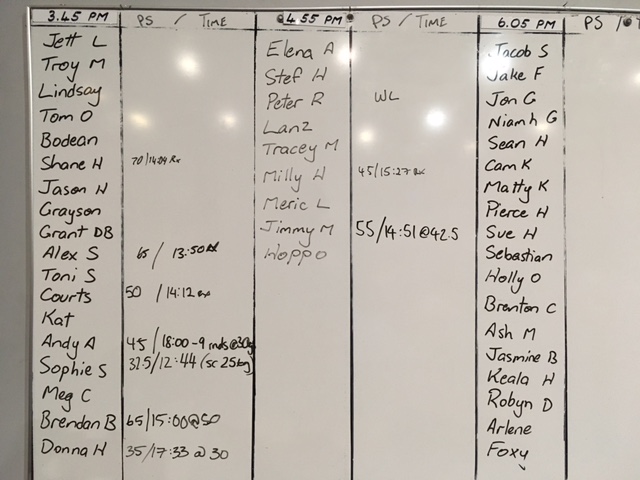 3.45 PM PS / TIME 4.55 PM PS / TIME 6.05 PM PS /
Jett L Elena A Jacob S
Troy M Stef H Jake F
Lindsay Peter R WL Jon G
Tom O Lanz Niamh G
Bodean Tracey M Sean H
Shane H 70/14:04 Rx Milly H 45/15:27 Rx Cam K
Jason H Meric L Matty K
Grayson Jimmy M 55/14:51@42.5 Pierce H
Grant DB Hoppo Sue H
Alex S 65/13:50 Rx Sebastian
Toni S Holly O
Courts 50/14:12 Rx Brenton C
Kat Ash M
Andy A 45/18:00-9 rnds@30kg Jasmine B
Sophie S 32.5/12:44 (sc 25kg) Keala H
Meg C Robyn D
Brendan B 65/15:00@50 Arlene
Donna H 35/17:33 @ 30 Foxy